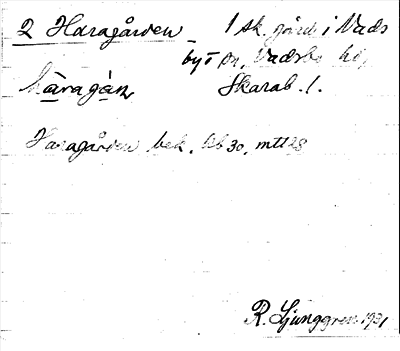 2 Haragården 1 sk. gård i Vads
by i sn, Vadsbo hd,
hàragàn Skarab. l.
Haragården bek. kb 30, mtl 28
R. Ljunggren 1931